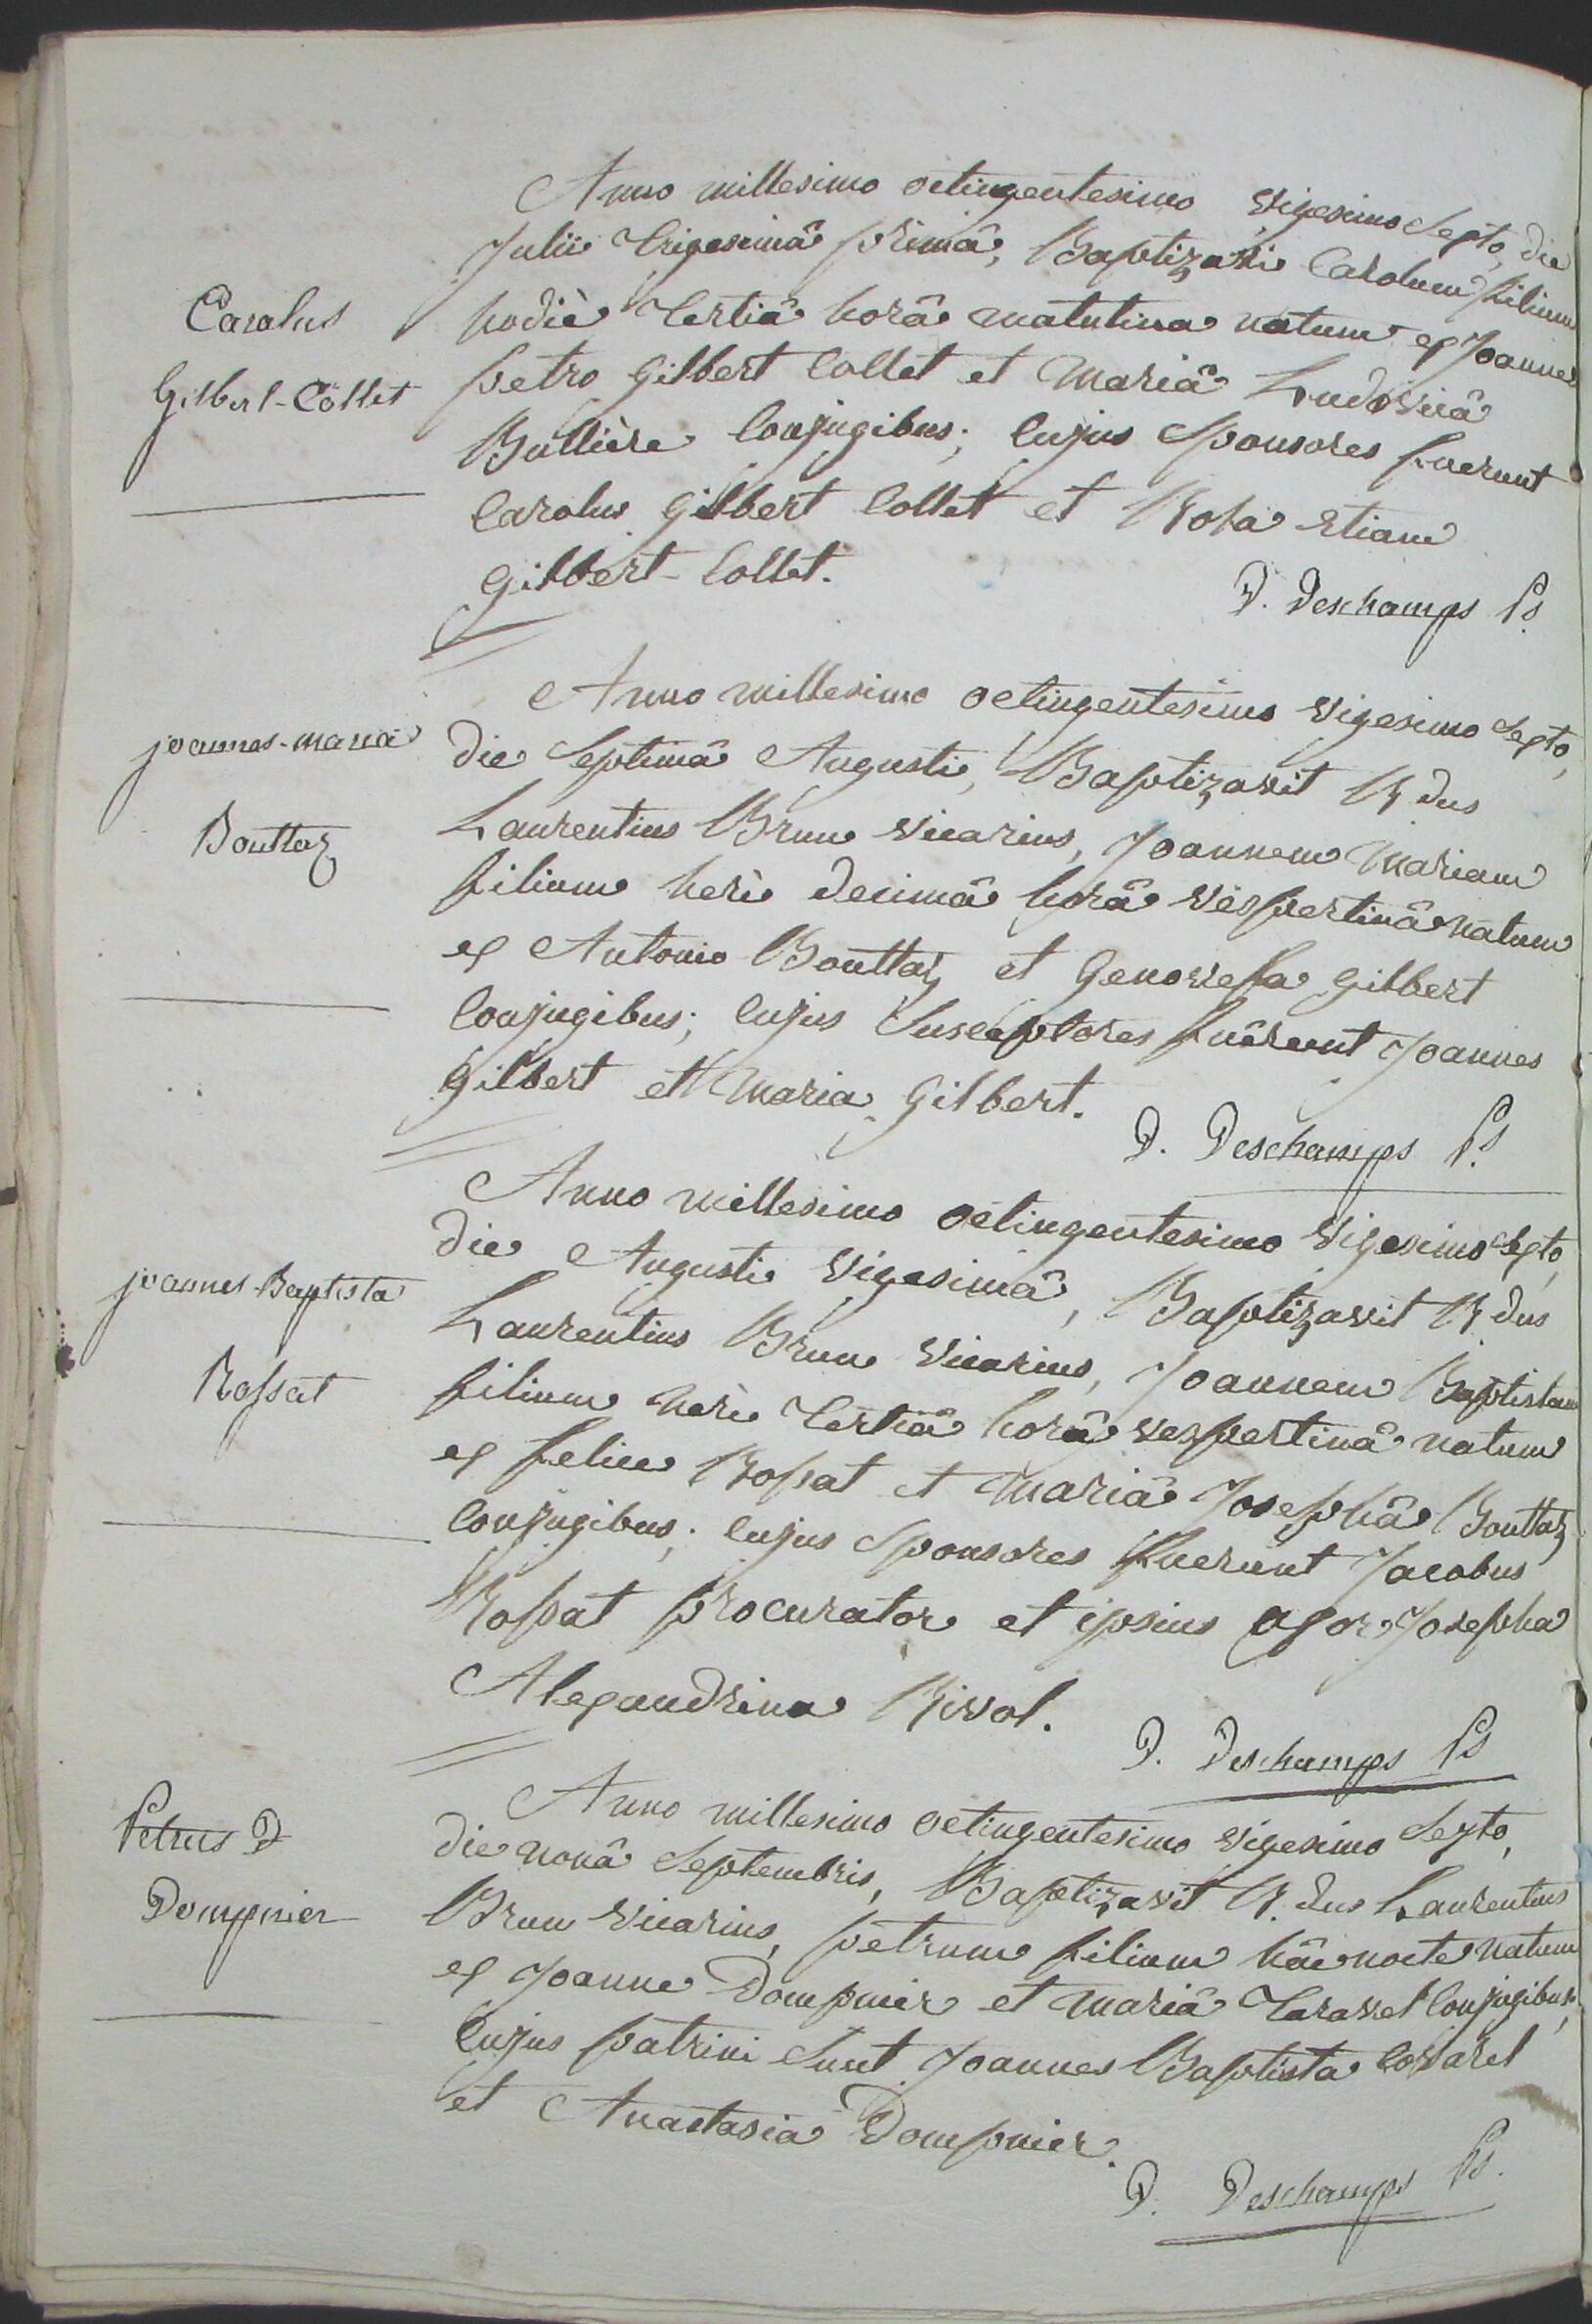 Anno millesimo octingentesimo vigesimo Sexto, die
Julii trigesimâ primâ, Baptizavi Carolum filium
hodiè tertiâ horâ matutina natum ex Joanne
Carolus
petro Gilbert Collet et Mariâ Ludovicâ
Gilbert-Collet
Bullière Conjugibus; Cujus Sponsores fuerunt
Carolus Gilbert Collet et Rosa etiam
Gilbert-Collet.
D. Deschamps P.
Anno millesimo octingentesimo vigesimo Sexto,
joannes-maria
die Septimâ Augusti, Baptizavit R.dus
Bouttaz
Laurentius Brun vicarius, Joannem Mariam
filium herì decimâ horâ vespertinâ natum
ex Antonio Bouttaz et Genovefa Gilbert
Conjugibus; Cujus Susceptores fuêrunt Joannes
Gilbert et Maria Gilbert.
D. Deschamps P.
Anno millesimo octingentesimo vigesimo Sexto,
die Augusti vigesimâ, Baptizavit R.dus
joannes-Baptista
Laurentius Brun vicarius, Joannem Baptistam
Rossat
filium herì tertiâ horâ vespertinâ natum
ex felice Rossat et Mariâ Josephâ Bouttaz
Conjugibus; Cujus Sponsores fuerunt Jacobus
Rossat procurator et ipsius uxor Josepha
Alexandrina Rivol.
D. Deschamps P.
Anno millesimo octingentesimo vigesimo Sexto,
Petrus D
die nonâ Septembris, Baptizavit R.dus Laurentius
Dompnier
Brun vicarius, petrum filium hâc nocte natum
ex Joanne Dompnier et Mariâ Taravel Conjugibus,
Cujus patrini Sunt Joannes Baptista
et Anastasia Dompnier.
D. Deschamps P.